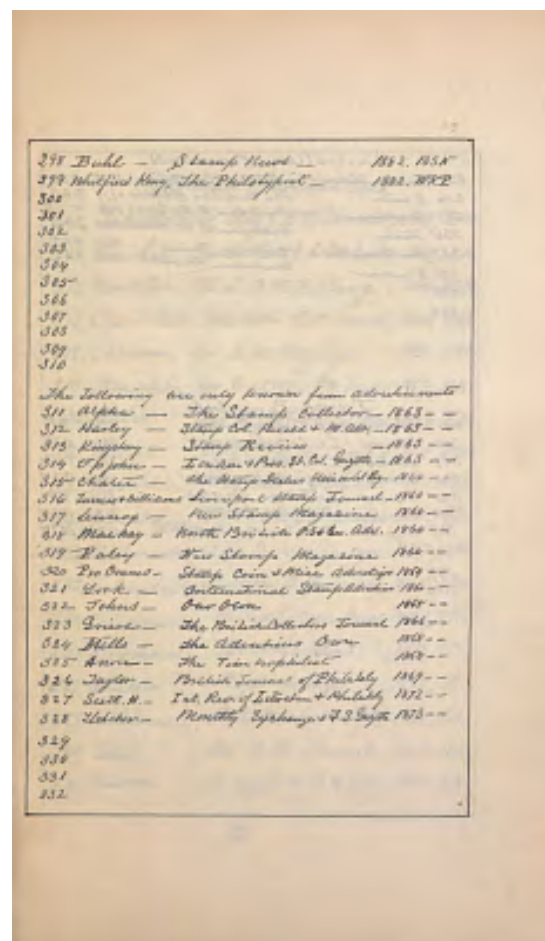 298 Buhl — Stamp News — 1882. BSN
299 Whitfield King, The Philatypist — 1882. WKP
300
301
302
303
304
305
306
307
308
309
310
The following are only known from advertisements
311 Alpha — The Stamp Collector — 1863 — —
312 Harley — Stamp Col. & M. Adv. — 1863 — —
313 Kingsley — Stamp Review — 1863 — —
314 — London & Prov. St. Col. Gazette — 1863 — —
315 — The Stamp Dealers
316 Liverpool Stamp Journal —
317 — New Stamp Magazine 1864 — —
318 Mackay — North British Adv. 1864 — —
319 Paley — New Stamp Magazine 1864 — —
320 Stamp Coin & Misc. Advertiser
321 York — International Stamp Advertiser
322 Johns — Our Own
323 Grieve — The British Collectors Journal
324 Mills — The Own
325 Anon — The Timbrophilist
326 Taylor — British Journal of Philately 1869 — —
327 Scott. H. — Int. Rev. of & Philately 1872 — —
328 — Monthly Exchange & F.S. Gazette 1873 — —
329
330
331
332